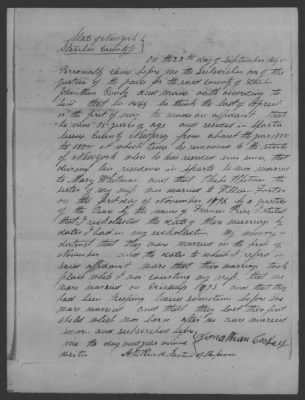 State of New York
Steuben County ss
On the 23th day of September 1850
Personally came before me the subscriber one of the
Justices of the peace for the said county of Steuben
Jonathan Cooley and made oath according to
law that in 1849 he thinks the last of April
or the first of May he made an affidavit that
he was 75 years of age and resided in Sparta
Sussex County New Jersey from about the year 1780
to 1800 at which time he removed to the state
of New York where he has resided ever since that
during his residence in Sparta he was married
to Mary Whitman and that Phebe Whitman the
sister of my wife was married to William Foster
on the first day of November 1793 by a Justice
of the Peace by the name of Francis Price I stated
that I recollected the date of their marriage by
dates I had in my recollection My memory is
distinct that they were married in the first of
November and the date to which I refer in
said affidavit was that their marriage took
place while I was courting my wife that we
were married on 1795 and that they
had been keeping house sometime before we
were married and that they lost their first
child which was born after we were married
Sworn and subscribed before
me the day and year above
written
Jonathan Cooley
Justice of the peace